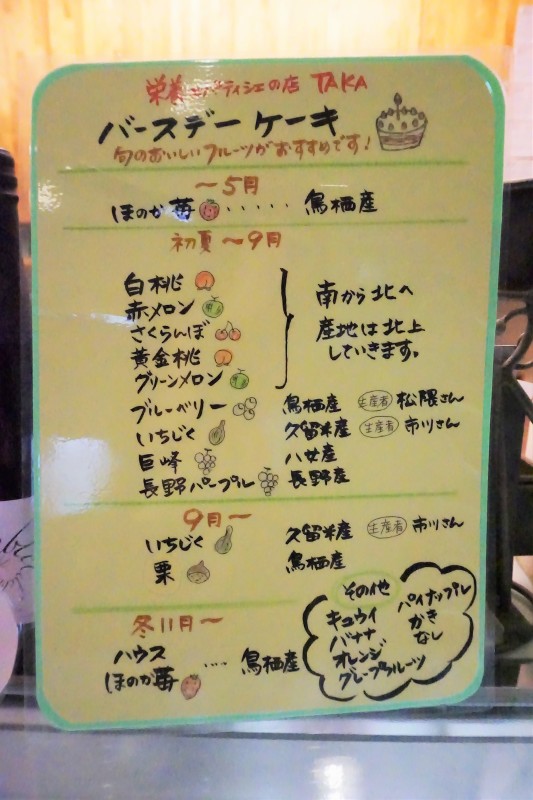 栄養パティシエの店 TAKA
バースデーケーキ
旬のおいしいフルーツがおすすめです!
〜5月
ほのか苺 ‥‥‥ 鳥栖産
初夏〜9月
白桃
赤メロン
さくらんぼ
黄金桃
グリーンメロン
南から北へ
産地は北上
していきます。
ブルーベリー 鳥栖産 生産者 松隈さん
いちじく 久留米産 生産者 市川さん
巨峰 八女産
長野パープル 長野産
9月〜
いちじく 久留米産 生産者 市川さん
栗 鳥栖産
冬11月〜
ハウス
ほのか苺 ‥‥ 鳥栖産
その他
キュウイ
バナナ
オレンジ
グレープフルーツ
パイナップル
かき
なし